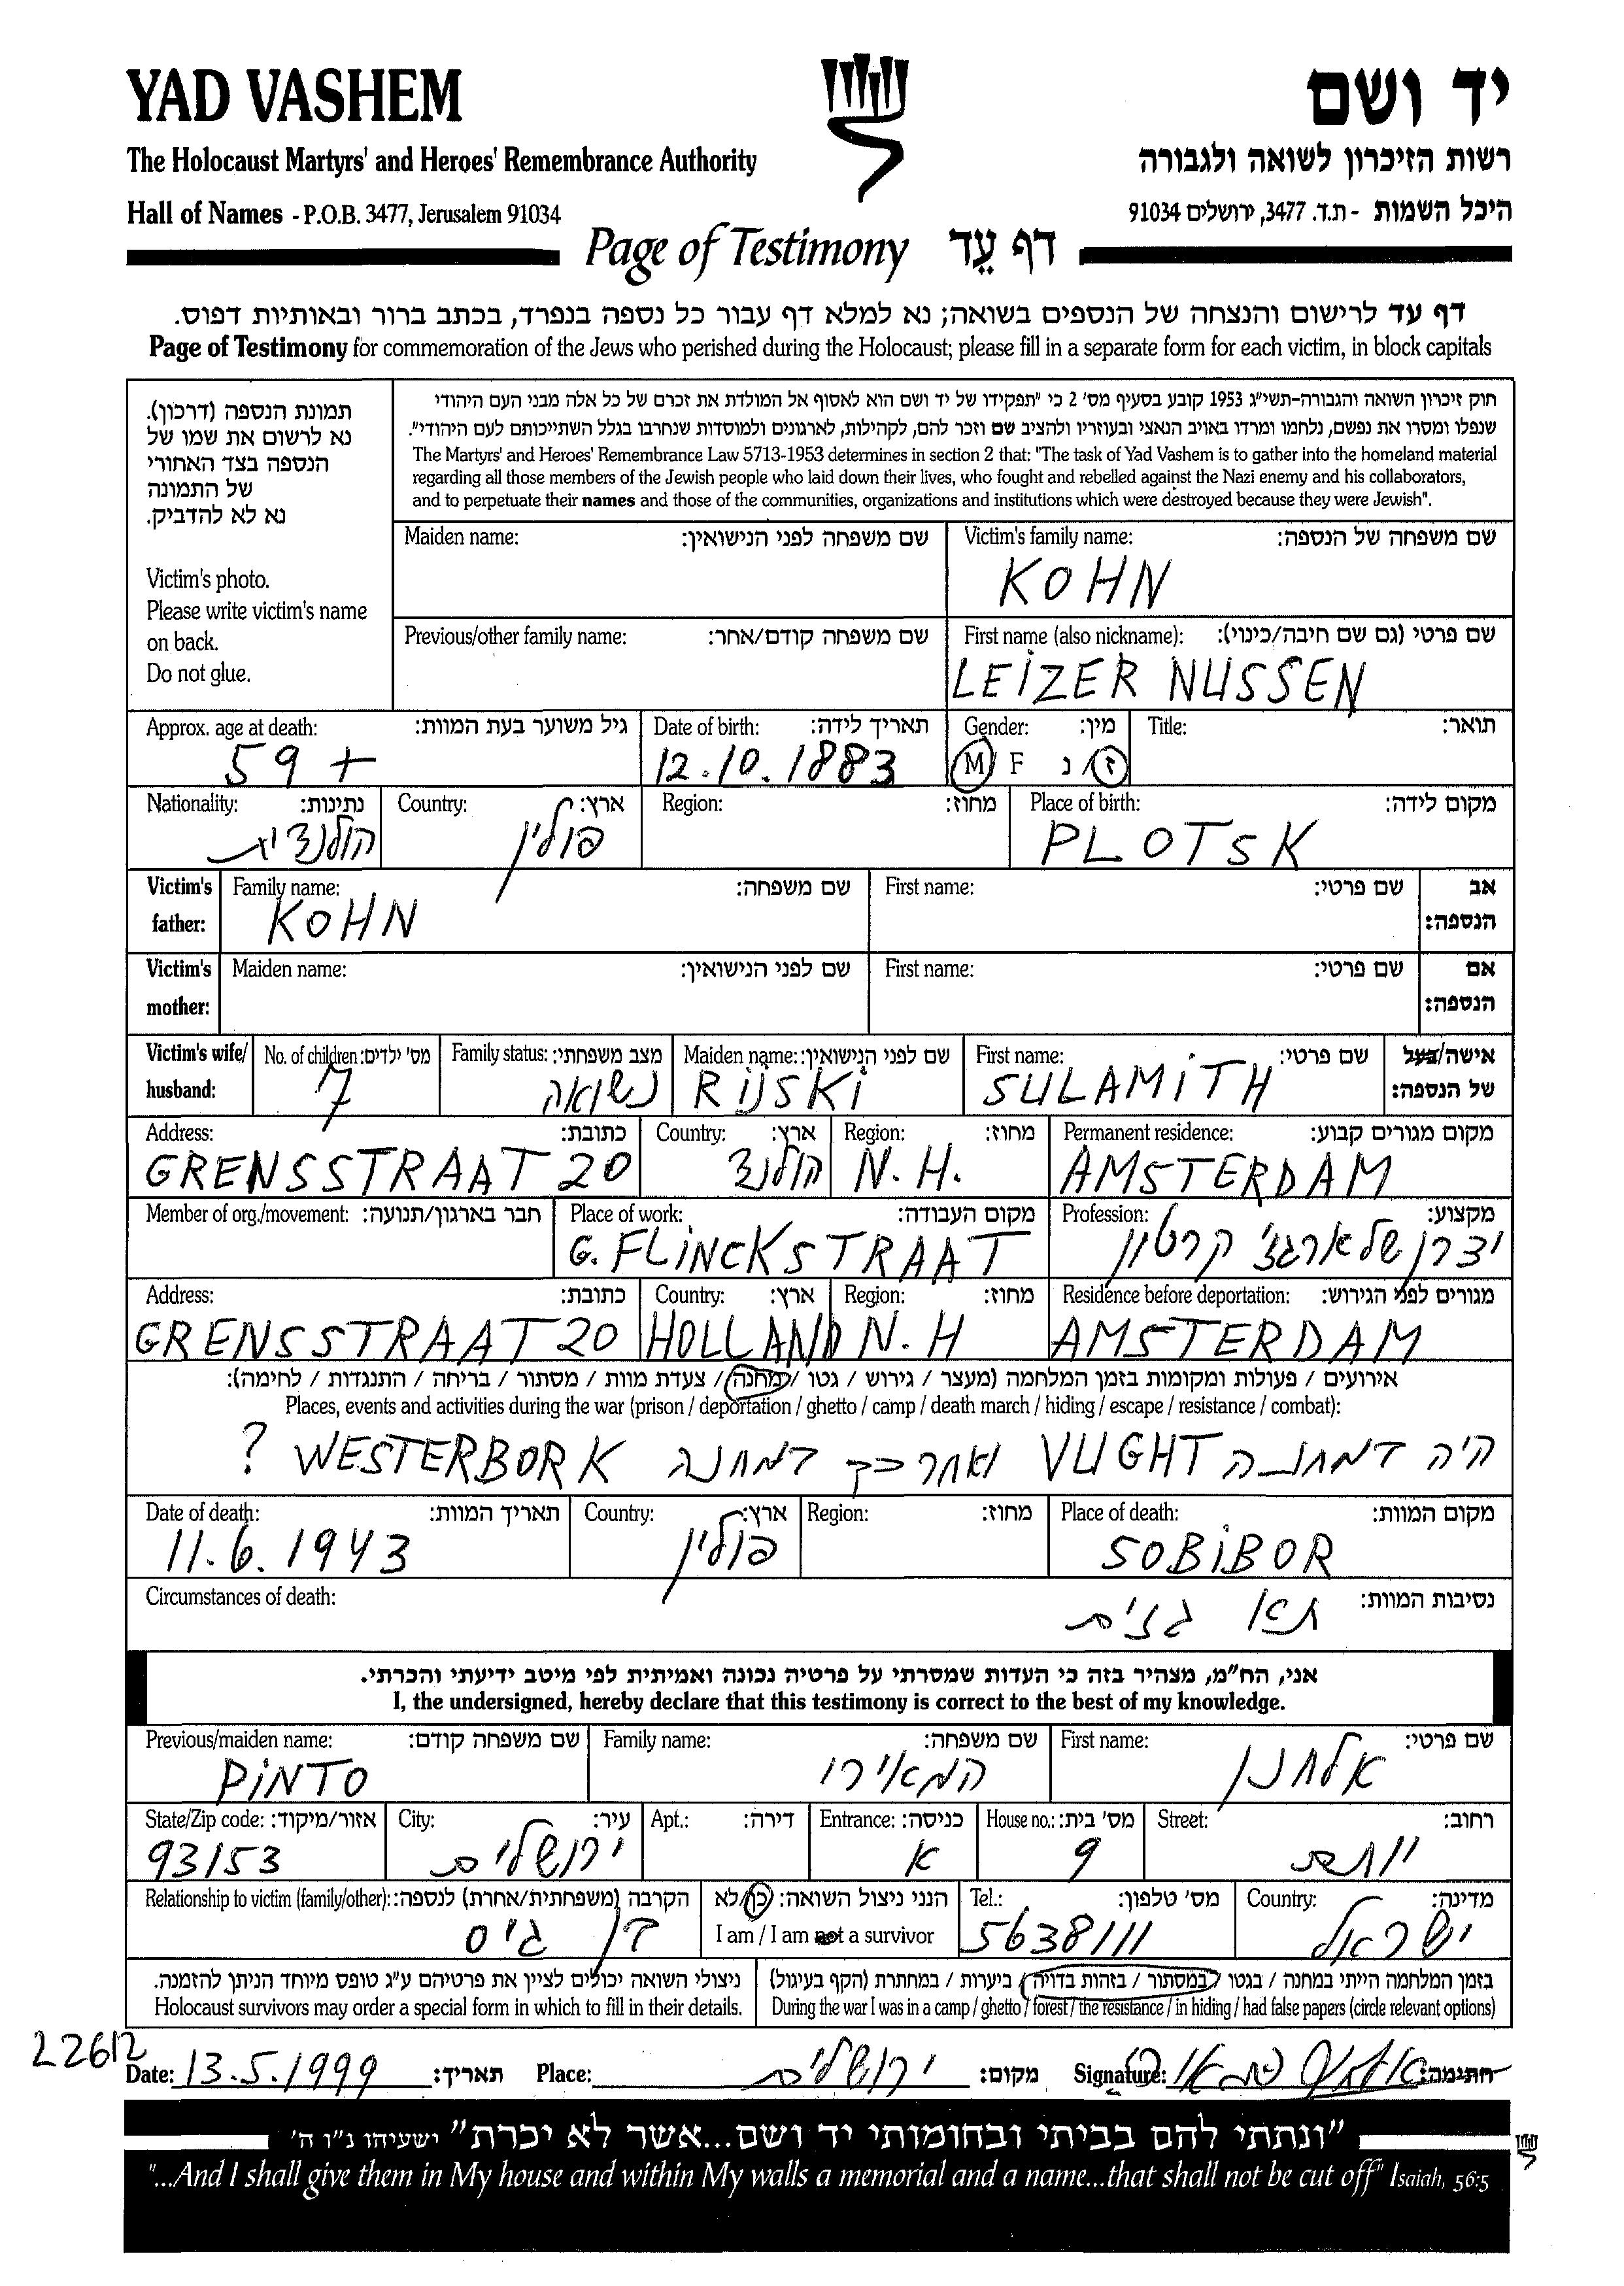 YAD VASHEM
יד ושם
The Holocaust Martyrs' and Heroes' Remembrance Authority
רשות הזיכרון לשואה ולגבורה
Hall of Names - P.O.B. 3477, Jerusalem 91034
היכל השמות - ת.ד. 3477, ירושלים 91034
Page of Testimony דף עֵד
דף עד לרישום והנצחה של הנספים בשואה; נא למלא דף עבור כל נספה בנפרד, בכתב ברור ובאותיות דפוס.
Page of Testimony for commemoration of the Jews who perished during the Holocaust; please fill in a separate form for each victim, in block capitals
תמונת הנספה (דרכון).
נא לרשום את שמו של
הנספה בצד האחורי
של התמונה
נא לא להדביק.
Victim's photo.
Please write victim's name
on back.
Do not glue.
חוק זיכרון השואה והגבורה-תשי"ג 1953 קובע בסעיף מס' 2 כי "תפקידו של יד ושם הוא לאסוף אל המולדת את זכרם של כל אלה מבני העם היהודי
שנפלו ומסרו את נפשם, נלחמו ומרדו באויב הנאצי ובעוזריו ולהציב שם וזכר להם, לקהילות, לארגונים ולמוסדות שנחרבו בגלל השתייכותם לעם היהודי".
The Martyrs' and Heroes' Remembrance Law 5713-1953 determines in section 2 that: "The task of Yad Vashem is to gather into the homeland material
regarding all those members of the Jewish people who laid down their lives, who fought and rebelled against the Nazi enemy and his collaborators,
and to perpetuate their names and those of the communities, organizations and institutions which were destroyed because they were Jewish".
Maiden name: שם משפחה לפני הנישואין:
Victim's family name: שם משפחה של הנספה:
KOHN
Previous/other family name: שם משפחה קודם/אחר:
First name (also nickname): שם פרטי (גם שם חיבה/כינוי):
LEIZER NUSSEN
Approx. age at death: גיל משוער בעת המוות:
59 +
Date of birth: תאריך לידה:
12.10.1883
Gender: מין:
M / F ז / נ
Title: תואר:
Nationality: נתינות:
הולנדית
Country: ארץ:
פולין
Region: מחוז:
Place of birth: מקום לידה:
PLOTSK
Victim's father:
Family name: שם משפחה:
KOHN
First name: שם פרטי:
אב הנספה:
Victim's mother:
Maiden name: שם לפני הנישואין:
First name: שם פרטי:
אם הנספה:
Victim's wife/ husband:
No. of children: מס' ילדים:
7
Family status: מצב משפחתי:
נשואה
Maiden name: שם לפני הנישואין:
RIJSKI
First name: שם פרטי:
SULAMITH
אישה/בעל של הנספה:
Address: כתובת:
GRENSSTRAAT 20
Country: ארץ:
הולנד
Region: מחוז:
N.H.
Permanent residence: מקום מגורים קבוע:
AMSTERDAM
Member of org./movement: חבר בארגון/תנועה:
Place of work: מקום העבודה:
G. FLINCKSTRAAT
Profession: מקצוע:
יצרן של ארגזי קרטון
Address: כתובת:
GRENSSTRAAT 20
Country: ארץ:
HOLLAND
Region: מחוז:
N.H
Residence before deportation: מגורים לפני הגירוש:
AMSTERDAM
אירועים / פעולות ומקומות בזמן המלחמה (מעצר / גירוש / גטו / מחנה / צעדת מוות / מסתור / בריחה / התנגדות / לחימה):
Places, events and activities during the war (prison / deportation / ghetto / camp / death march / hiding / escape / resistance / combat):
היה במחנה VUGHT ואחר כך במחנה WESTERBORK ?
Date of death: תאריך המוות:
11.6.1943
Country: ארץ:
פולין
Region: מחוז:
Place of death: מקום המוות:
SOBIBOR
Circumstances of death: נסיבות המוות:
תא גזים
אני, הח"מ, מצהיר בזה כי העדות שמסרתי על פרטיה נכונה ואמיתית לפי מיטב ידיעתי והכרתי.
I, the undersigned, hereby declare that this testimony is correct to the best of my knowledge.
Previous/maiden name: שם משפחה קודם:
PINTO
Family name: שם משפחה:
המאירי
First name: שם פרטי:
אלחנן
State/Zip code: אזור/מיקוד:
93153
City: עיר:
ירושלים
Apt.: דירה:
Entrance: כניסה:
א
House no.: מס' בית:
9
Street: רחוב:
יותם
Relationship to victim (family/other): הקרבה (משפחתית/אחרת) לנספה:
בן גיס
הנני ניצול השואה: כן/לא
I am / I am not a survivor
Tel.: מס' טלפון:
5638111
Country: מדינה:
ישראל
ניצולי השואה יכולים לציין את פרטיהם ע"ג טופס מיוחד הניתן להזמנה.
Holocaust survivors may order a special form in which to fill in their details.
בזמן המלחמה הייתי במחנה / בגטו / במסתור / בזהות בדויה / ביערות / במחתרת (הקף בעיגול)
During the war I was in a camp / ghetto / forest / the resistance / in hiding / had false papers (circle relevant options)
22612
Date: 13.5.1999 תאריך:
Place: ירושלים מקום:
Signature: חתימה:
"ונתתי להם בביתי ובחומותי יד ושם...אשר לא יכרת" ישעיהו נ"ו ה'
"...And I shall give them in My house and within My walls a memorial and a name...that shall not be cut off" Isaiah, 56:5